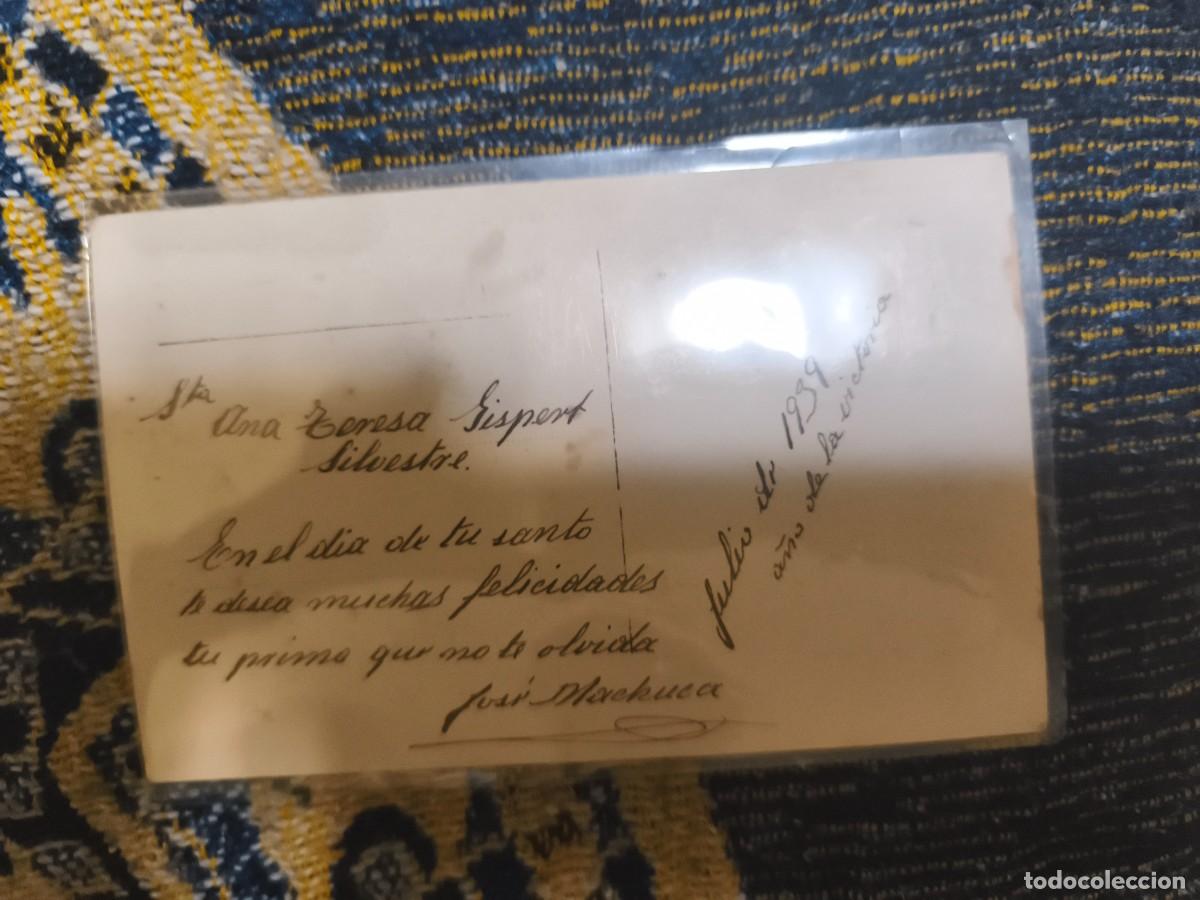 Sta Ana Teresa Gispert
Silvestre.
En el dia de tu santo
te desea muchas felicidades
tu primo que no te olvida
José Machuca
Julio de 1939
año de la victoria
todocoleccion